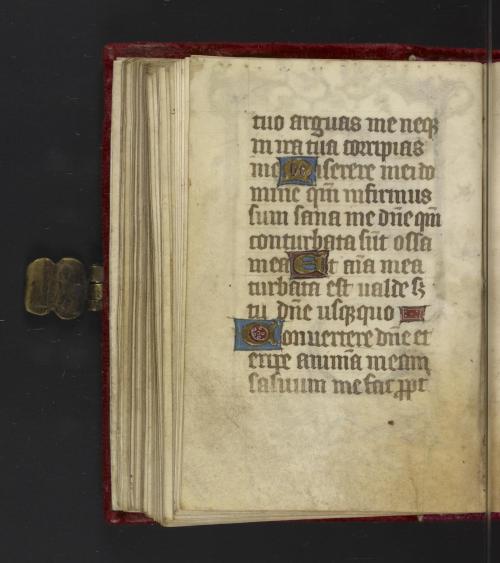 tuo arguas me neqꝫ
in ira tua corripias
me Miserere mei do
mine qm̄ infirmus
sum sana me dn̄e qm̄
conturbata sūt ossa
mea Et aīa mea
turbata est ualde sꝫ
tu dn̄e usqꝫquo
Conuertere dn̄e et
eripe animā meam
saluum me fac ꝓpt